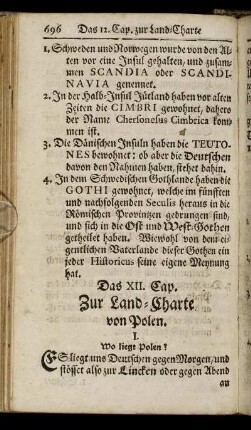 696 Das 12. Cap. zur Land-Charte
1. Schweden und Norwegen wurde von den Al-
ten vor eine Insul gehalten, und zusam-
men SCANDIA oder SCANDI-
NAVIA genennet.
2. In der Halb-Insul Jütland haben vor alten
Zeiten die CIMBRI gewohnet, dahero
der Name Chersonesus Cimbrica kom-
men ist.
3. Die Dänischen Insuln haben die TEUTO-
NES bewohnet: ob aber die Deutschen
davon den Nahmen haben, stehet dahin.
4. In dem Schwedischen Gothlande haben die
GOTHI gewohnet, welche im fünfften
und nachfolgenden Seculis heraus in die
Römischen Provintzen gedrungen sind,
und sich in die Ost- und West-Gothen
getheilet haben. Wiewohl von dem ei-
gentlichen Vaterlande dieser Gothen ein
jeder Historicus seine eigene Meynung
hat.
Das XII. Cap.
Zur Land-Charte
von Polen.
I.
Wo liegt Polen?
ES liegt uns Deutschen gegen Morgen, und
stösset also zur Lincken oder gegen Abend
an